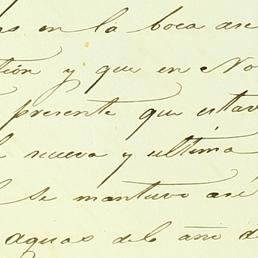 en la boca
y que en No
presente que estav
nueva y ultima
se mantuvo asi
aguas del año de